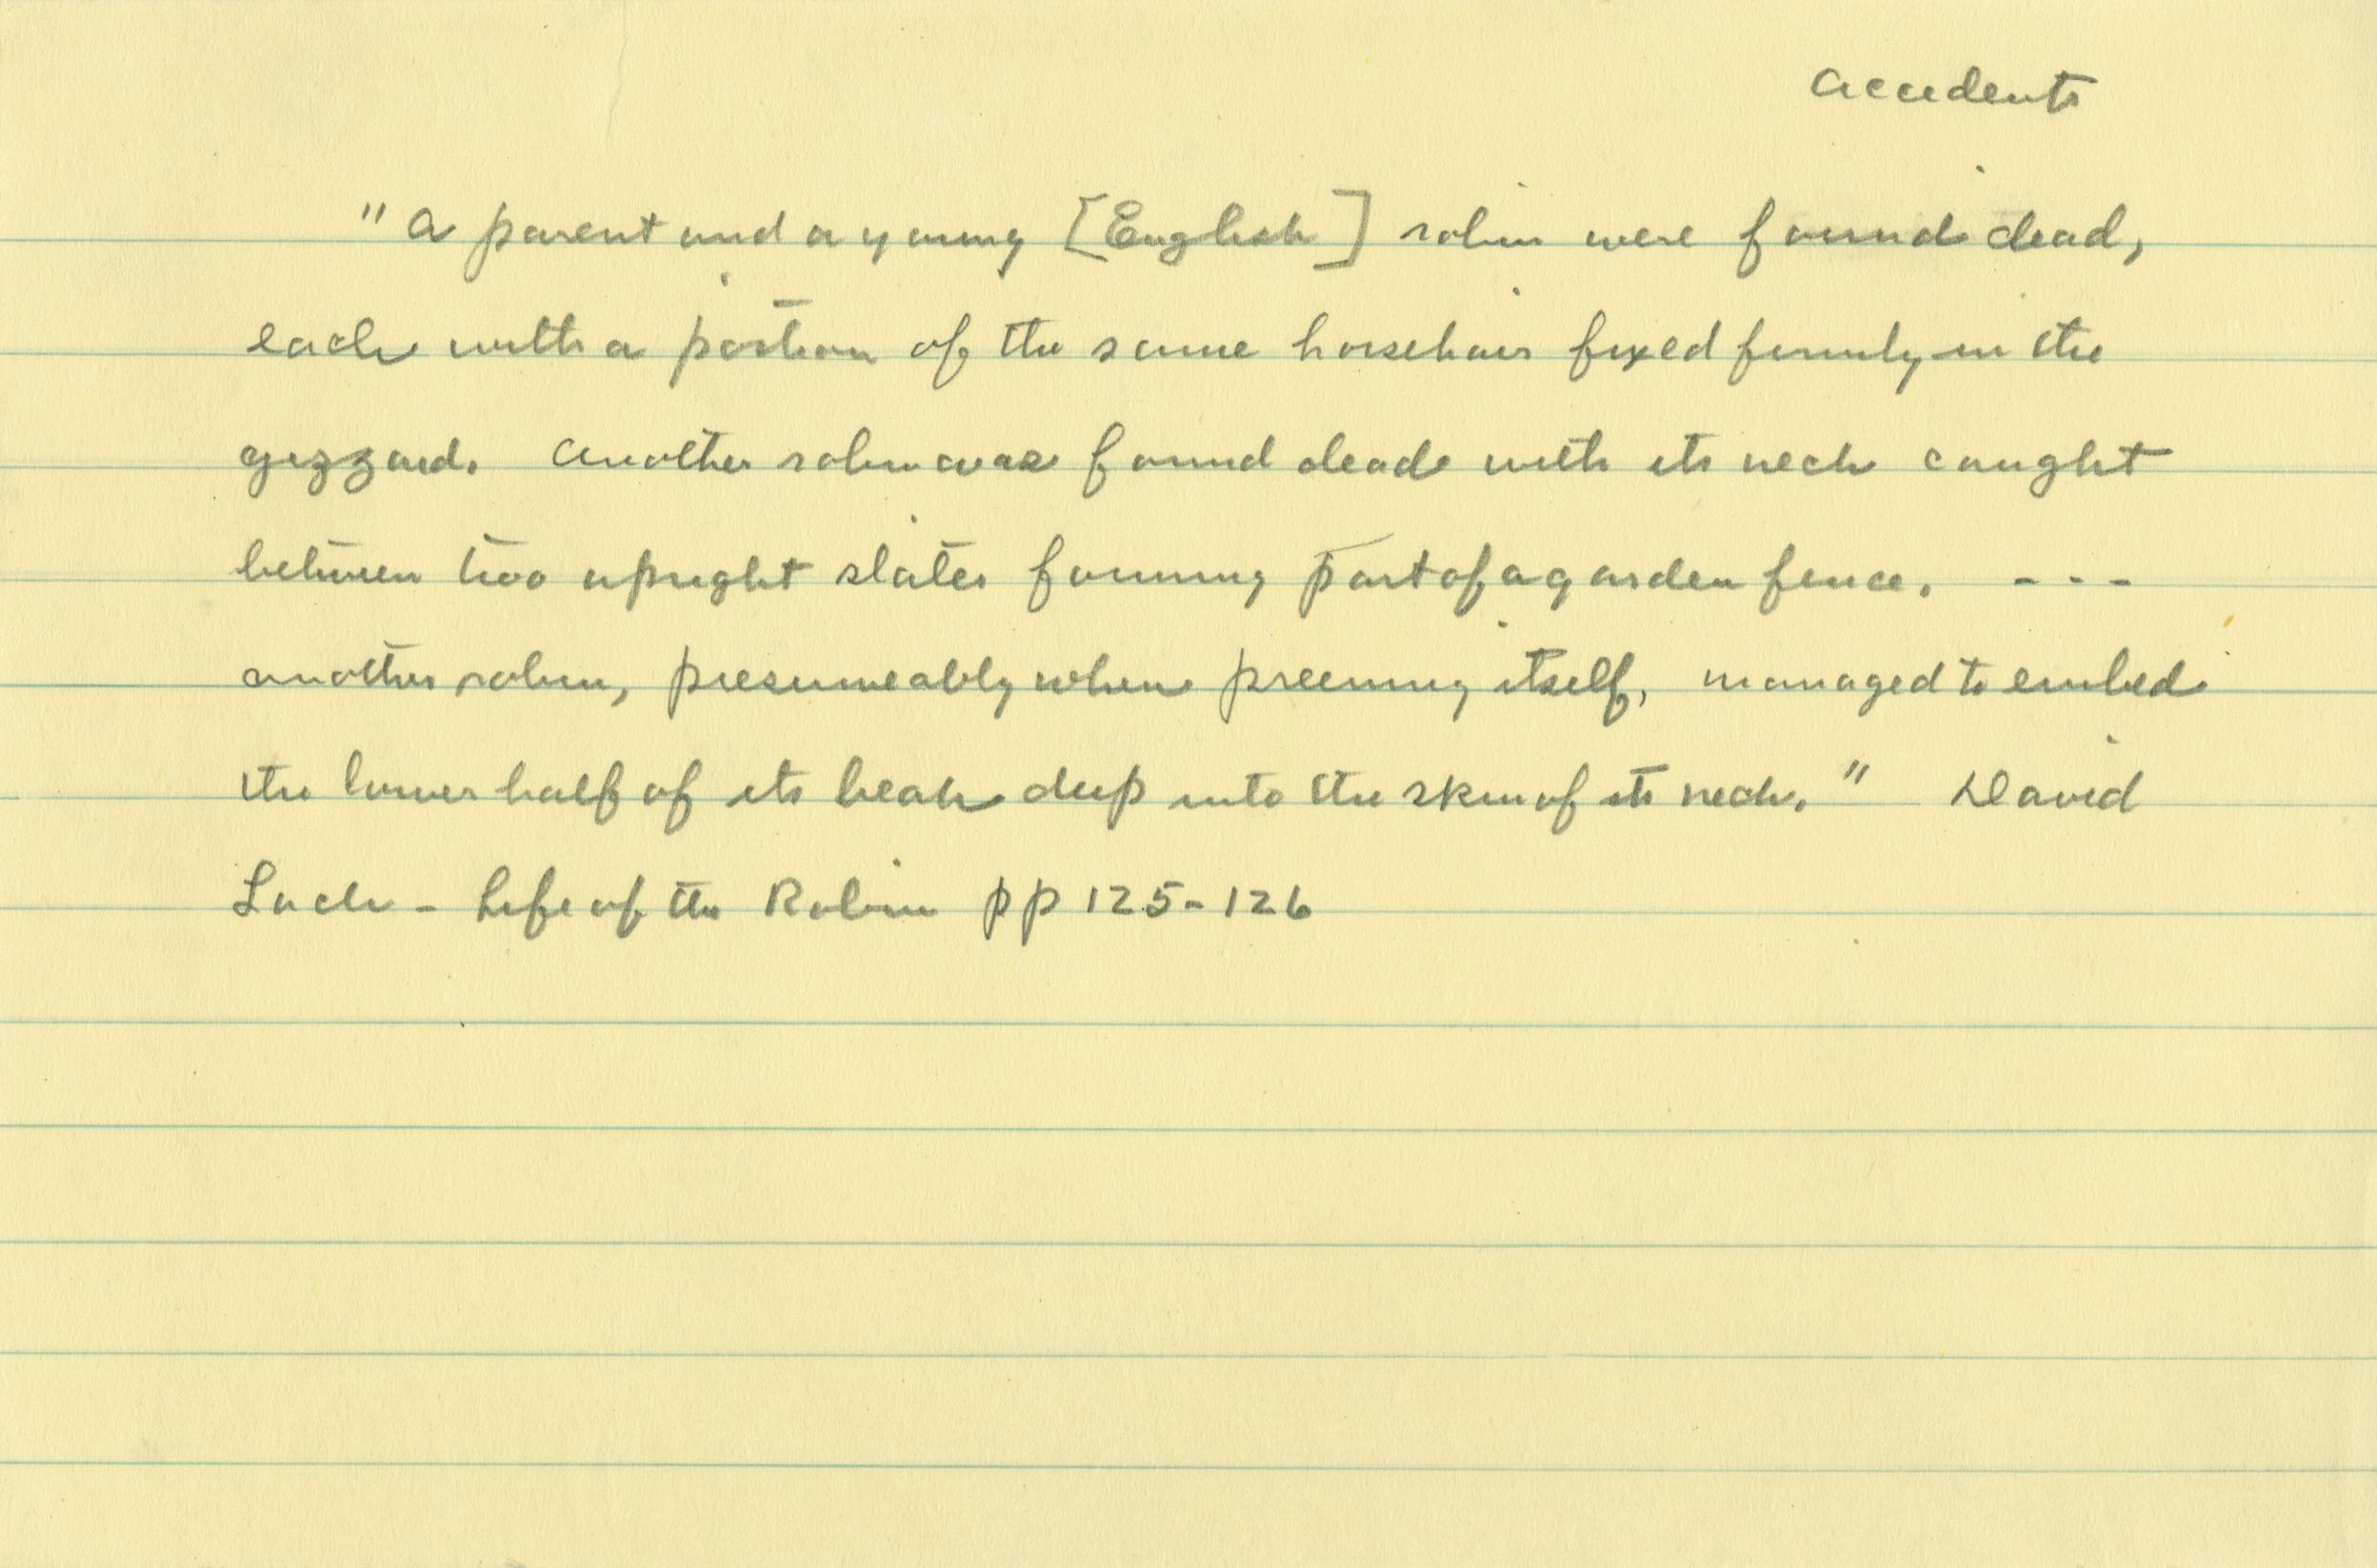 Accidents
"A parent and a young [English] robin were found dead,
each with a portion of the same horsehair fixed firmly in the
gizzard. Another robin was found dead with its neck caught
between two upright slates forming part of a garden fence. - - -
another robin, presumeably when preening itself, managed to embed
the lower half of its beak deep into the skin of its neck." David
Lack - Life of the Robin pp 125-126